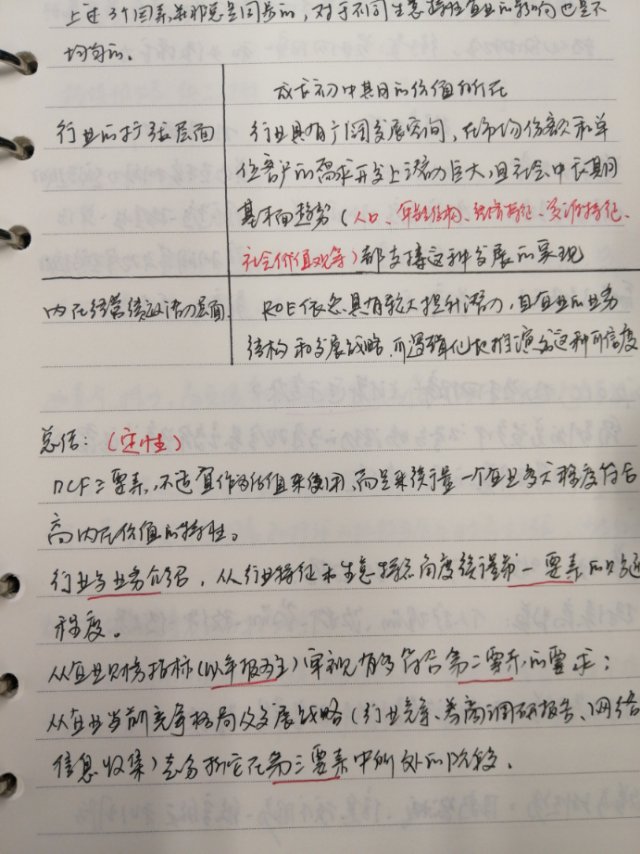 上述3个因素并非总是同步的，对于不同生意特性企业的影响也是不
均匀的。
成长初中期的价值所在
行业的扩张层面
行业具有广阔发展空间，在市场份额和单
位客户的需求开发上潜力巨大，且社会中长期间
基本面趋势（人口、年龄结构、经济特征、资源特征、
社会价值观等）都支持这种发展的实现
内在经营绩效潜力层面
ROE依然具有较大提升潜力，且企业的业务
结构和发展战略，可逻辑化地推演出这种可信度
总结：（定性）
DCF三要素，不适宜作为估值来使用，而是来衡量一个企业多大程度符合
高内在价值的特性。
行业与业务介绍，从行业特征和生意特征角度衡量第一要素的契合
程度。
从企业财务指标（以年报为主）审视有多符合第二要素的要求；
从企业当前竞争格局及发展战略（行业竞争、券商调研报告、网络
信息收集）去分析它在第三要素中所处的阶段。